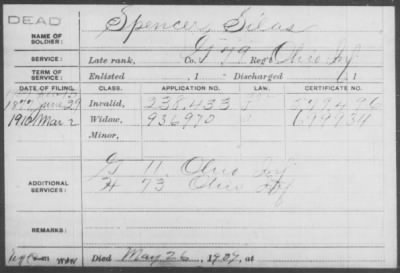 DEAD
NAME OF SOLDIER: Spencer, Silas
SERVICE: Late rank, Co. G 79 Reg't Ohio Inf
TERM OF SERVICE: Enlisted , 1 Discharged , 1
DATE OF FILING. CLASS. APPLICATION NO. LAW. CERTIFICATE NO.
1877 June 29 Invalid, 238,433
1910 Mar 2 Widow, 936970 699934
Minor,
ADDITIONAL SERVICES: G 11. Ohio Inf
H 73 Ohio Inf
REMARKS:
Died May 26, 1907, at